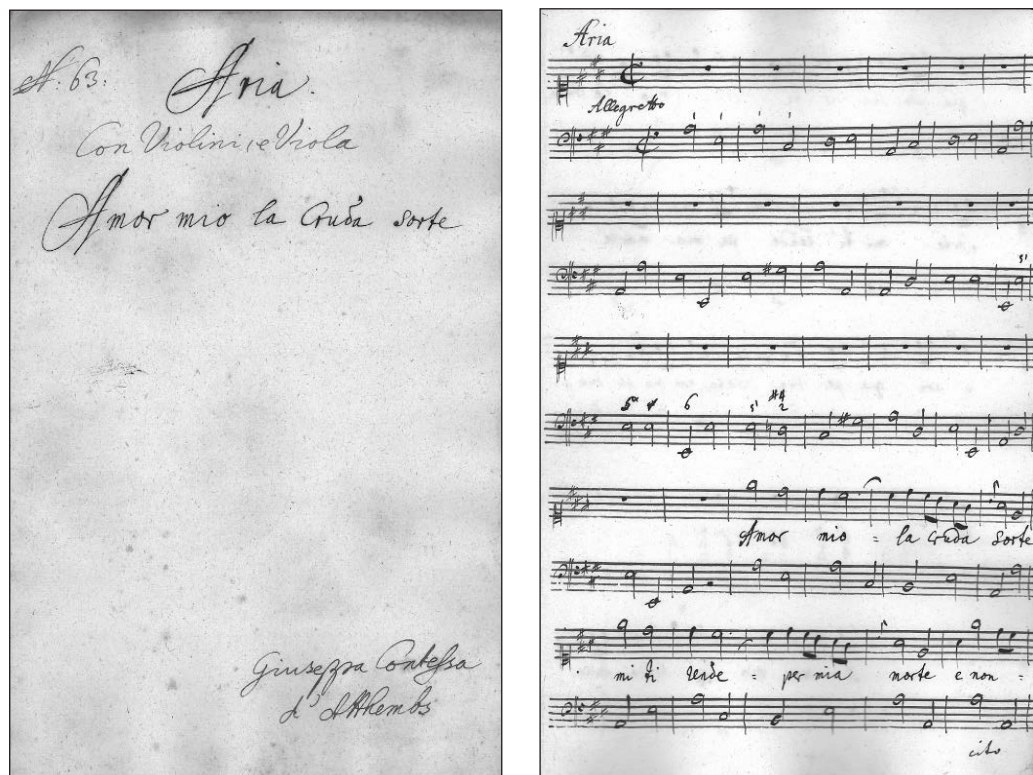 N. 63.
Aria.
Con Violini, e Viola
Amor mio la Cruda sorte
Giuseppa Contessa
d'Atthembs
Aria
Allegretto
5
5 6 5 #4
2
Amor mio = la Cruda sorte
mi ti rende = per mia morte e non =
cito